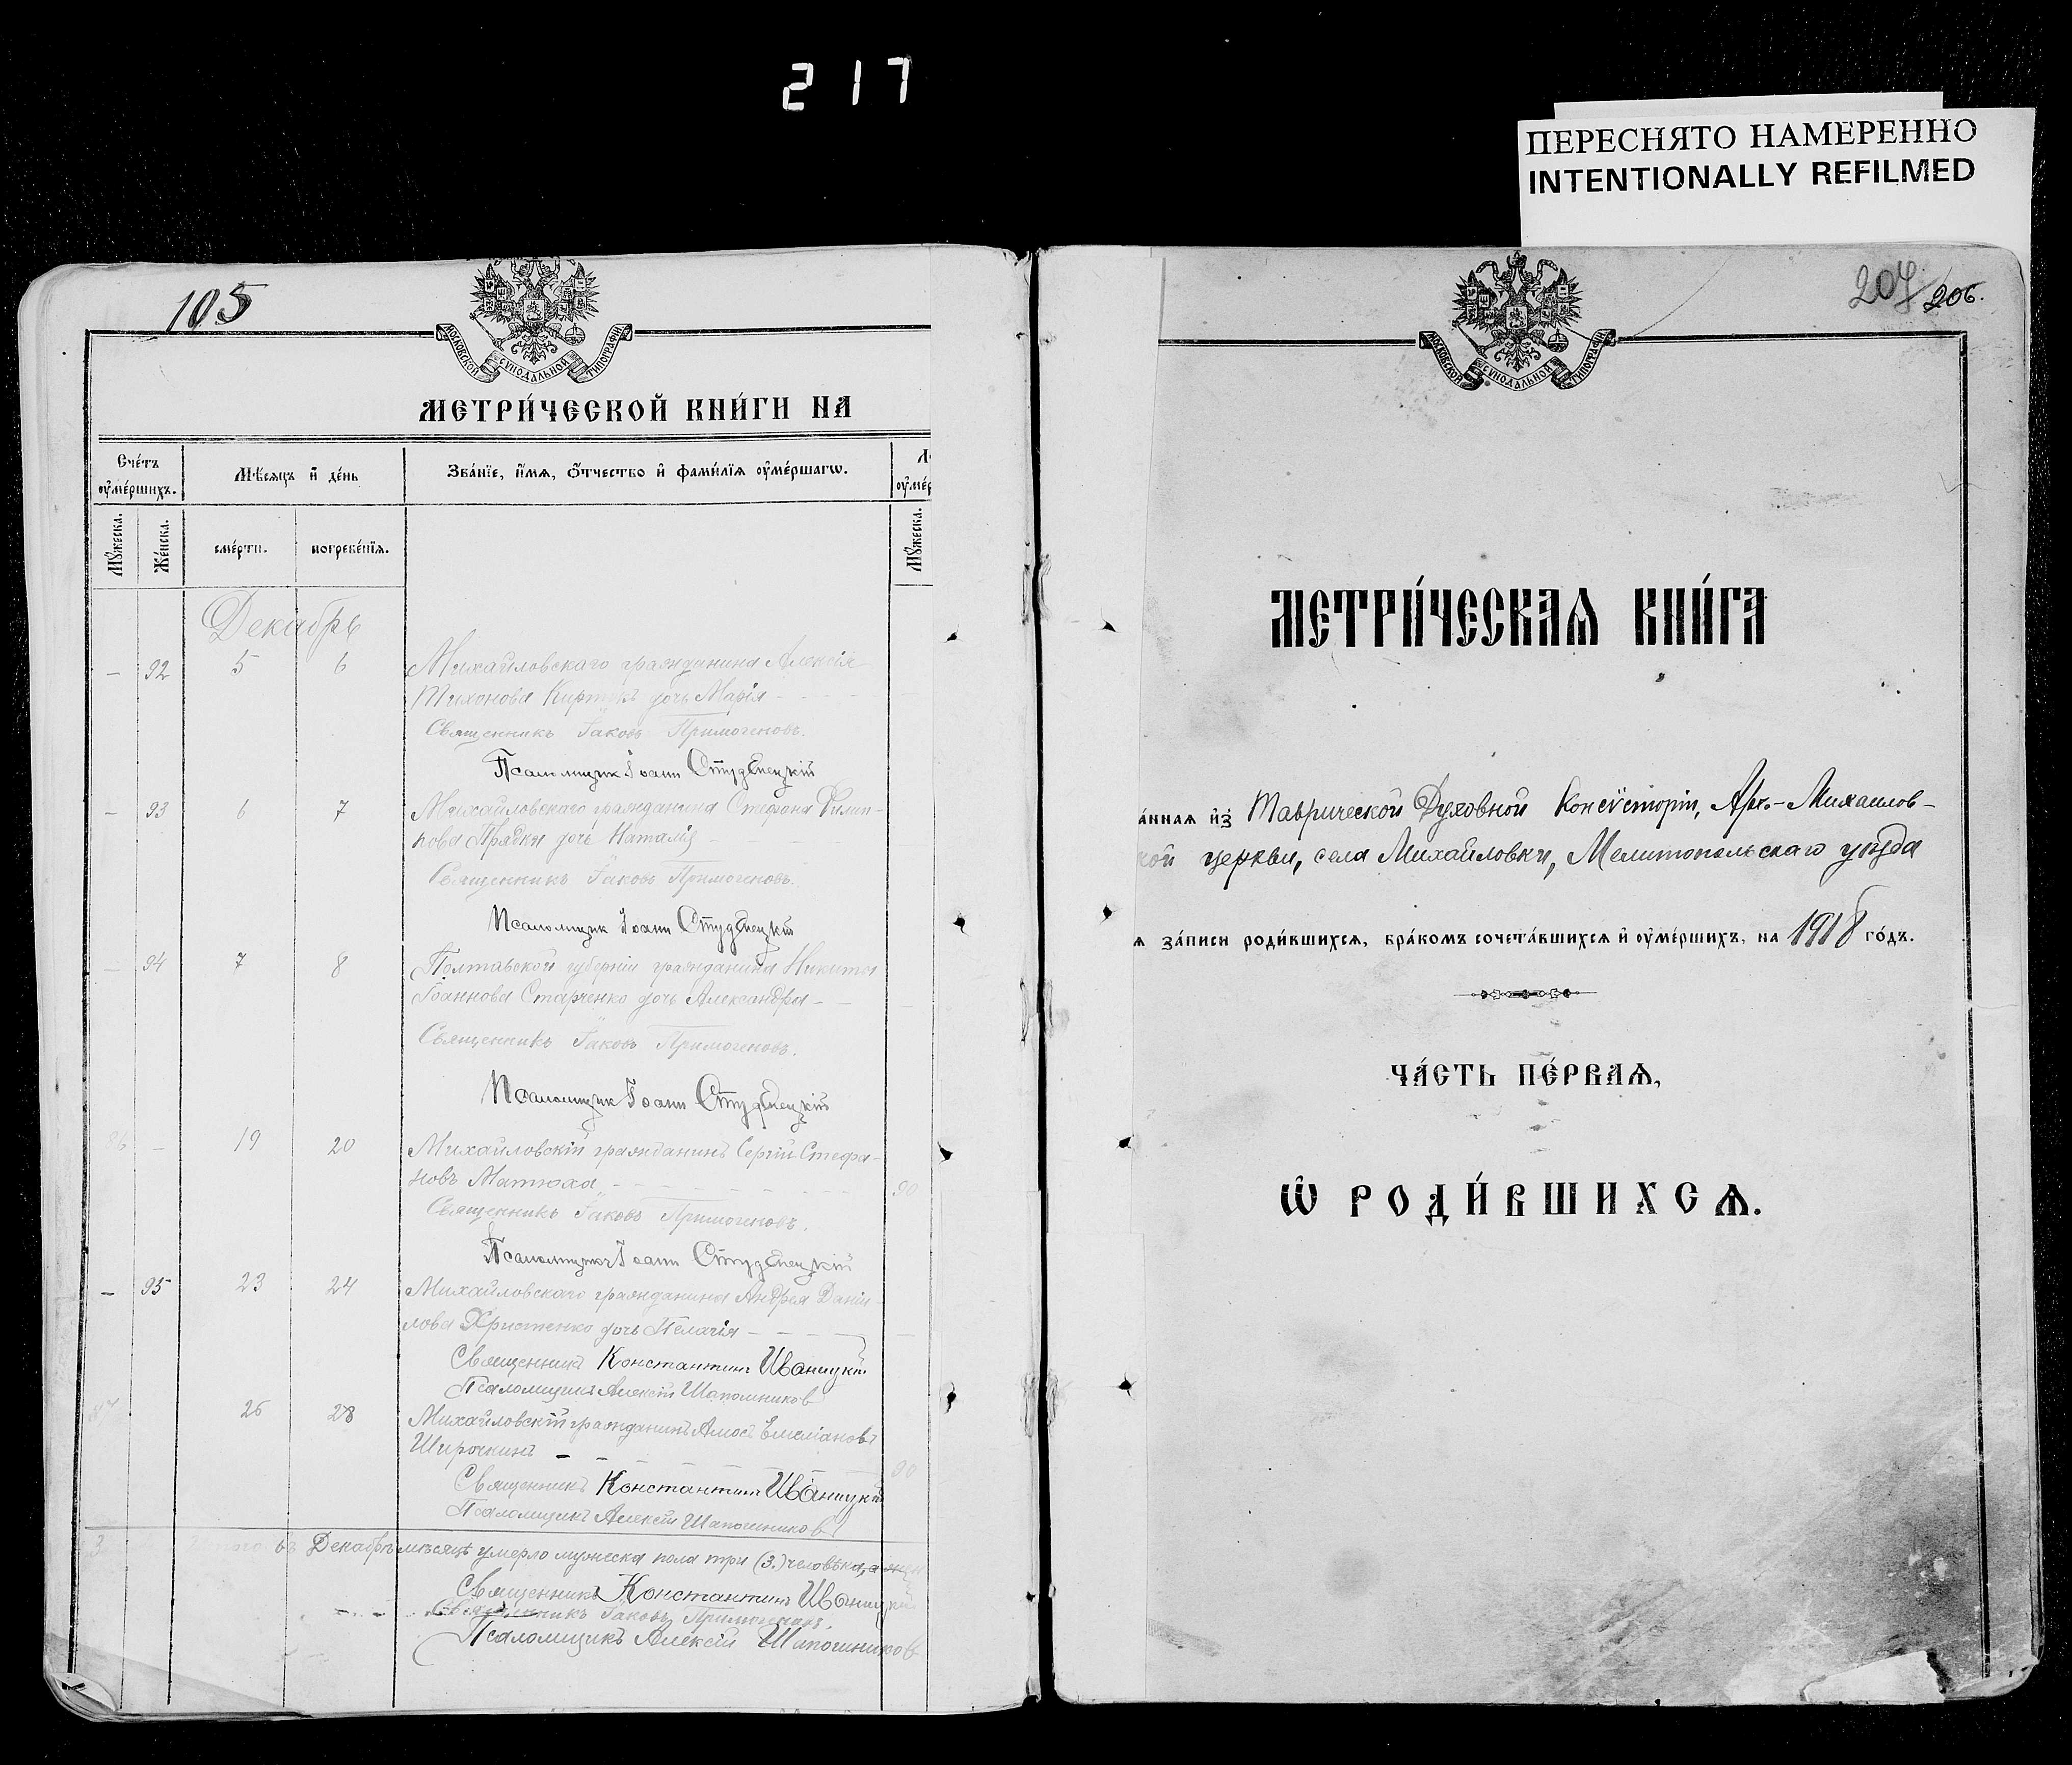 217
ПЕРЕСНЯТО НАМЕРЕННО
INTENTIONALLY REFILMED
105
МОСКОВСКОЙ СѴНОДАЛЬНОЙ ТИПОГРАФІИ
МЕТРИ́ЧЕСКОЙ КНИ́ГИ НА
Сче́тъ ᲂу҆ме́ршихъ.
Мѣ́сяцъ и҆ де́нь
Зва́нїе, и҆́мѧ, ѻ҆́тчество и҆ фами́лїѧ ᲂу҆ме́ршагѡ.
Мꙋ́жеска.
Же́нска.
сме́рти.
погребе́нїѧ.
Мꙋ́жеска.
Декабрь
– 92 5 6 Михайловскаго гражданина Алексія
Тихонова дочь Марія
Священникъ Іаковъ Примогеновъ.
Псаломщик Іоанн Студенецкій
– 93 6 7 Михайловскаго гражданина Стефана Филип-
пова Прядки дочь Наталія
Священникъ Іаковъ Примогеновъ.
Псаломщик Іоанн Студенецкій
– 94 7 8 Полтавской губерніи гражданина Никиты
Іоаннова Старченко дочь Александра
Священникъ Іаковъ Примогеновъ.
Псаломщик Іоанн Студенецкій
86 – 19 20 Михайловскій гражданинъ Сергій Стефа-
новъ Матюха 90
Священникъ Іаковъ Примогеновъ.
Псаломщикъ Іоанн Студенецкій
– 95 23 24 Михайловскаго гражданина Андрея Даніи-
лова Христенко дочь Пелагія
Священникъ Константинъ Иваницкій
Псаломщикъ Алексій Шапошников
87 26 28 Михайловскій гражданинъ Амосъ Емеліановъ
Широкинъ 90
Священникъ Константинъ Иваницкій
Псаломщикъ Алексій Шапошников
3 Итого въ Декабрѣ мѣсяцѣ умерло мужеска пола три (3.) человѣка, а жен
Священникъ Константинъ Иваницкій
Священникъ Іаковъ Примогеновъ.
Псаломщикъ Алексій Шапошников
207 206.
МОСКОВСКОЙ СѴНОДАЛЬНОЙ ТИПОГРАФІИ
МЕТРИ́ЧЕСКАѦ КНИ́ГА
а́ннаѧ и҆з̾ Таврической Духовной Консисторіи, Арх.-Михаилов-
ской церкви, села Михайловки, Мелитопольскаго уѣзда
ѧ за́писи роди́вшихсѧ, бра́комъ сочета́вшихсѧ и҆ ᲂу҆ме́ршихъ, на 1918 го́дъ.
ЧА́СТЬ ПЕ́РВАѦ,
Ѽ РОДИ́ВШИХСѦ.